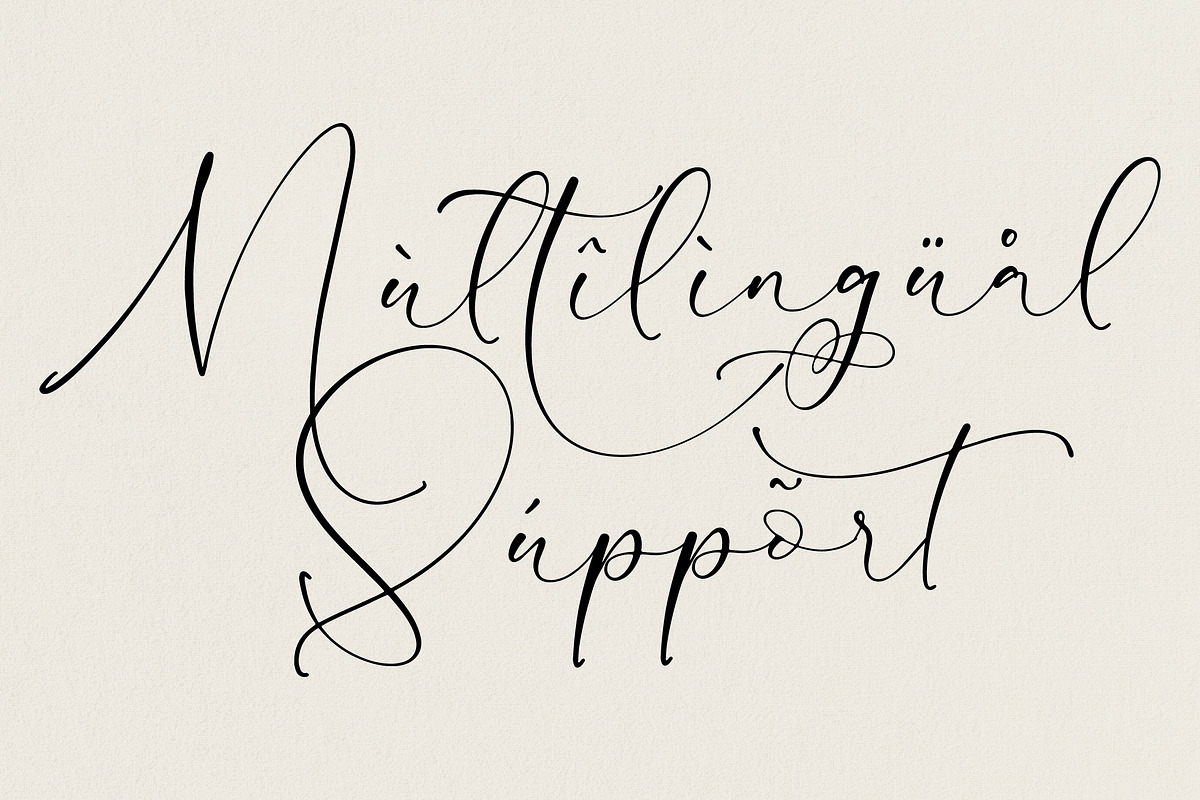 Mùltîlìngüål
Súppõrt